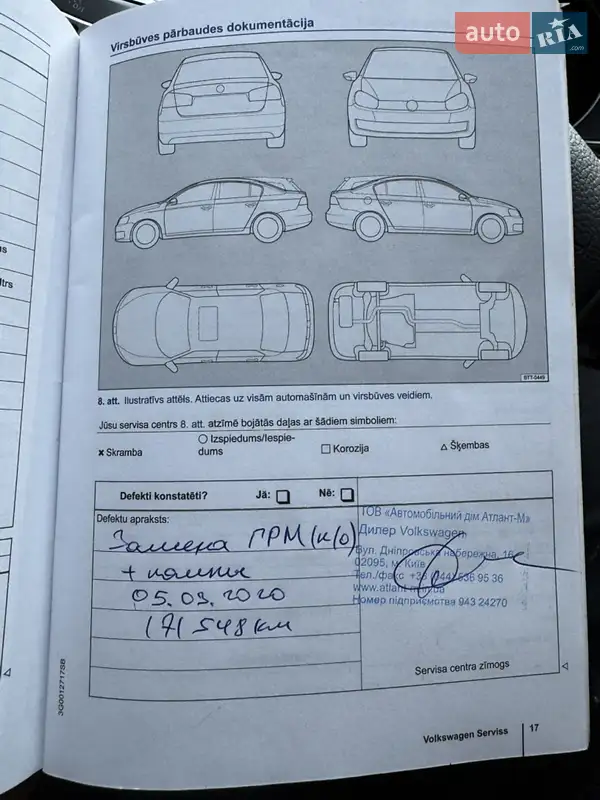 auto RIA .com
Virsbūves pārbaudes dokumentācija
BTT-0449
8. att. Ilustratīvs attēls. Attiecas uz visām automašīnām un virsbūves veidiem.
Jūsu servisa centrs 8. att. atzīmē bojātās daļas ar šādiem simboliem:
× Skramba
○ Izspiedums/Iespie-
dums
□ Korozija
△ Šķembas
Defekti konstatēti? Jā: Nē:
Defektu apraksts:
Замена ГРМ (к/о)
+ помпы
05.03.2020
171 548 км
ТОВ «Автомобільний дім Атлант-М»
Дилер Volkswagen
Вул. Дніпровська набережна, 16
02095, м. Київ
Тел./факс 536 95 36
Номер підприємства 943 24270
Servisa centra zīmogs
3G0012717SB
Volkswagen Serviss 17